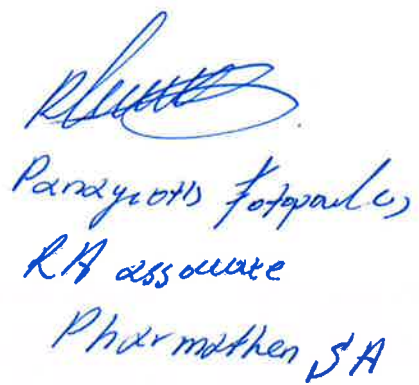 Panayiotis Fotopoulos
RA associate
Pharmathen SA